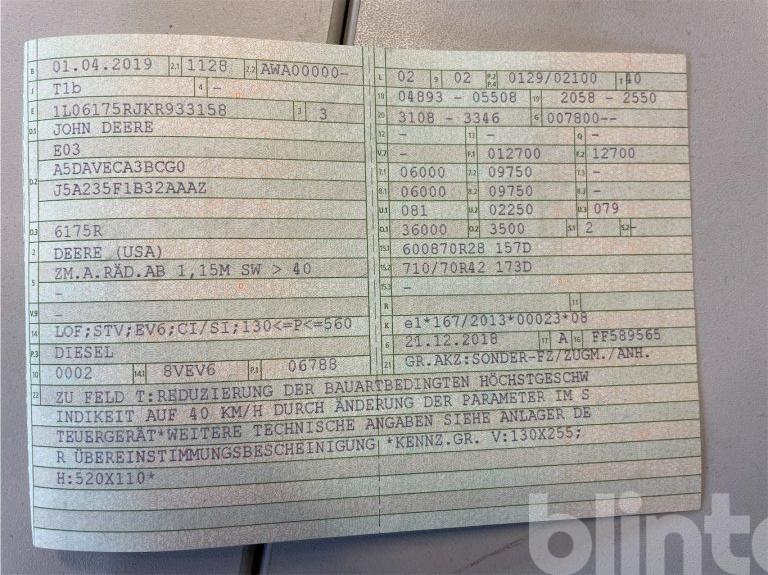 B 01.04.2019 2.1 1128 2.2 AWA00000-
J T1b 4 -
E 1L06175RJKR933158 3 3
D.1 JOHN DEERE
E03
D.2 A5DAVECA3BCG0
J5A235F1B32AAAZ
D.3 6175R
2 DEERE (USA)
5 ZM.A.RÄD.AB 1,15M SW > 40
-
V.9 -
14 LOF;STV;EV6;CI/SI;130<=P<=560
P.3 DIESEL
10 0002 14.1 8VEV6 P.1 06788
L 02 9 02 P.2 P.4 0129/02100 T 40
18 04893 - 05508 19 2058 - 2550
20 3108 - 3346 G 007800--
12 - 13 - Q -
V.7 - F.1 012700 F.2 12700
7.1 06000 7.2 09750 7.3 -
8.1 06000 8.2 09750 8.3 -
U.1 081 U.2 02250 U.3 079
O.1 36000 O.2 3500 S.1 2 S.2 -
15.1 600870R28 157D
15.2 710/70R42 173D
15.3 -
R 11
K e1*167/2013*00023*08
6 21.12.2018 17 A 16 FF589565
21 GR.AKZ:SONDER-FZ/ZUGM./ANH.
22 ZU FELD T:REDUZIERUNG DER BAUARTBEDINGTEN HÖCHSTGESCHW
INDIKEIT AUF 40 KM/H DURCH ÄNDERUNG DER PARAMETER IM S
TEUERGERÄT*WEITERE TECHNISCHE ANGABEN SIEHE ANLAGER DE
R ÜBEREINSTIMMUNGSBESCHEINIGUNG *KENNZ.GR. V:130X255;
H:520X110*